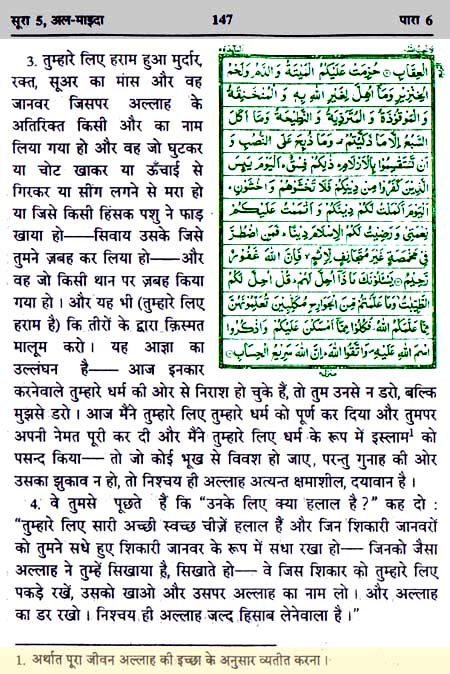 सूरा 5, अल-माइदा 147 पारा 6
3. तुम्हारे लिए हराम हुआ मुर्दार,
रक्त, सूअर का मांस और वह
जानवर जिसपर अल्लाह के
अतिरिक्त किसी और का नाम
लिया गया हो और वह जो घुटकर
या चोट खाकर या ऊँचाई से
गिरकर या सींग लगने से मरा हो
या जिसे किसी हिंसक पशु ने फाड़
खाया हो——सिवाय उसके जिसे
तुमने ज़बह कर लिया हो——और
वह जो किसी थान पर ज़बह किया
गया हो। और यह भी (तुम्हारे लिए
हराम है) कि तीरों के द्वारा क़िस्मत
मालूम करो। यह आज्ञा का
उल्लंघन है—— आज इनकार
الْعِقَابِ حُرِّمَتْ عَلَيْكُمُ الْمَيْتَةُ وَالدَّمُ وَلَحْمُ
الْخِنْزِيرِ وَمَا أُهِلَّ لِغَيْرِ اللهِ بِهِ وَالْمُنْخَنِقَةُ
وَالْمَوْقُوذَةُ وَالْمُتَرَدِّيَةُ وَالنَّطِيحَةُ وَمَا أَكَلَ
السَّبُعُ إِلَّا مَا ذَكَّيْتُمْ وَمَا ذُبِحَ عَلَى النُّصُبِ وَ
أَنْ تَسْتَقْسِمُوا بِالْأَزْلَامِ ذَلِكُمْ فِسْقٌ الْيَوْمَ يَئِسَ
الَّذِينَ كَفَرُوا مِنْ دِينِكُمْ فَلَا تَخْشَوْهُمْ وَاخْشَوْنِ
الْيَوْمَ أَكْمَلْتُ لَكُمْ دِينَكُمْ وَأَتْمَمْتُ عَلَيْكُمْ
نِعْمَتِي وَرَضِيتُ لَكُمُ الْإِسْلَامَ دِينًا فَمَنِ اضْطُرَّ
فِي مَخْمَصَةٍ غَيْرَ مُتَجَانِفٍ لِإِثْمٍ فَإِنَّ اللهَ غَفُورٌ
رَحِيمٌ يَسْأَلُونَكَ مَاذَا أُحِلَّ لَهُمْ قُلْ أُحِلَّ لَكُمُ
الطَّيِّبَاتُ وَمَا عَلَّمْتُمْ مِنَ الْجَوَارِحِ مُكَلِّبِينَ تُعَلِّمُونَهُنَّ
مِمَّا عَلَّمَكُمُ اللهُ فَكُلُوا مِمَّا أَمْسَكْنَ عَلَيْكُمْ وَاذْكُرُوا
اسْمَ اللهِ عَلَيْهِ وَاتَّقُوا اللهَ إِنَّ اللهَ سَرِيعُ الْحِسَابِ
करनेवाले तुम्हारे धर्म की ओर से निराश हो चुके हैं, तो तुम उनसे न डरो, बल्कि
मुझसे डरो। आज मैंने तुम्हारे लिए तुम्हारे धर्म को पूर्ण कर दिया और तुमपर
अपनी नेमत पूरी कर दी और मैंने तुम्हारे लिए धर्म के रूप में इस्लाम¹ को
पसन्द किया—— तो जो कोई भूख से विवश हो जाए, परन्तु गुनाह की ओर
उसका झुकाव न हो, तो निश्चय ही अल्लाह अत्यन्त क्षमाशील, दयावान है।
4. वे तुमसे पूछते हैं कि “उनके लिए क्या हलाल है?” कह दो :
“तुम्हारे लिए सारी अच्छी स्वच्छ चीज़ें हलाल हैं और जिन शिकारी जानवरों
को तुमने सधे हुए शिकारी जानवर के रूप में सधा रखा हो—— जिनको जैसा
अल्लाह ने तुम्हें सिखाया है, सिखाते हो—— वे जिस शिकार को तुम्हारे लिए
पकड़े रखें, उसको खाओ और उसपर अल्लाह का नाम लो। और अल्लाह
का डर रखो। निश्चय ही अल्लाह जल्द हिसाब लेनेवाला है।”
1. अर्थात पूरा जीवन अल्लाह की इच्छा के अनुसार व्यतीत करना।